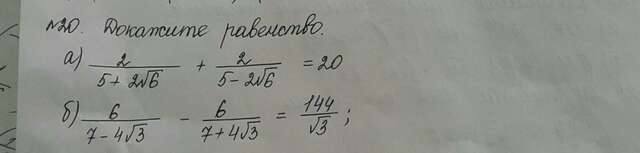 №20. Докажите равенство.
а) 2/(5+2√6) + 2/(5-2√6) = 20
б) 6/(7-4√3) - 6/(7+4√3) = 144/√3;